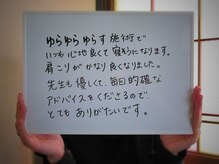 ゆらゆらゆらす 施術で
いつも心地良くて 寝そうになります。
肩こりが かなり良くなりました。
先生も 優しくて、毎回的確な
アドバイスをくださるので、
とても ありがたいです。